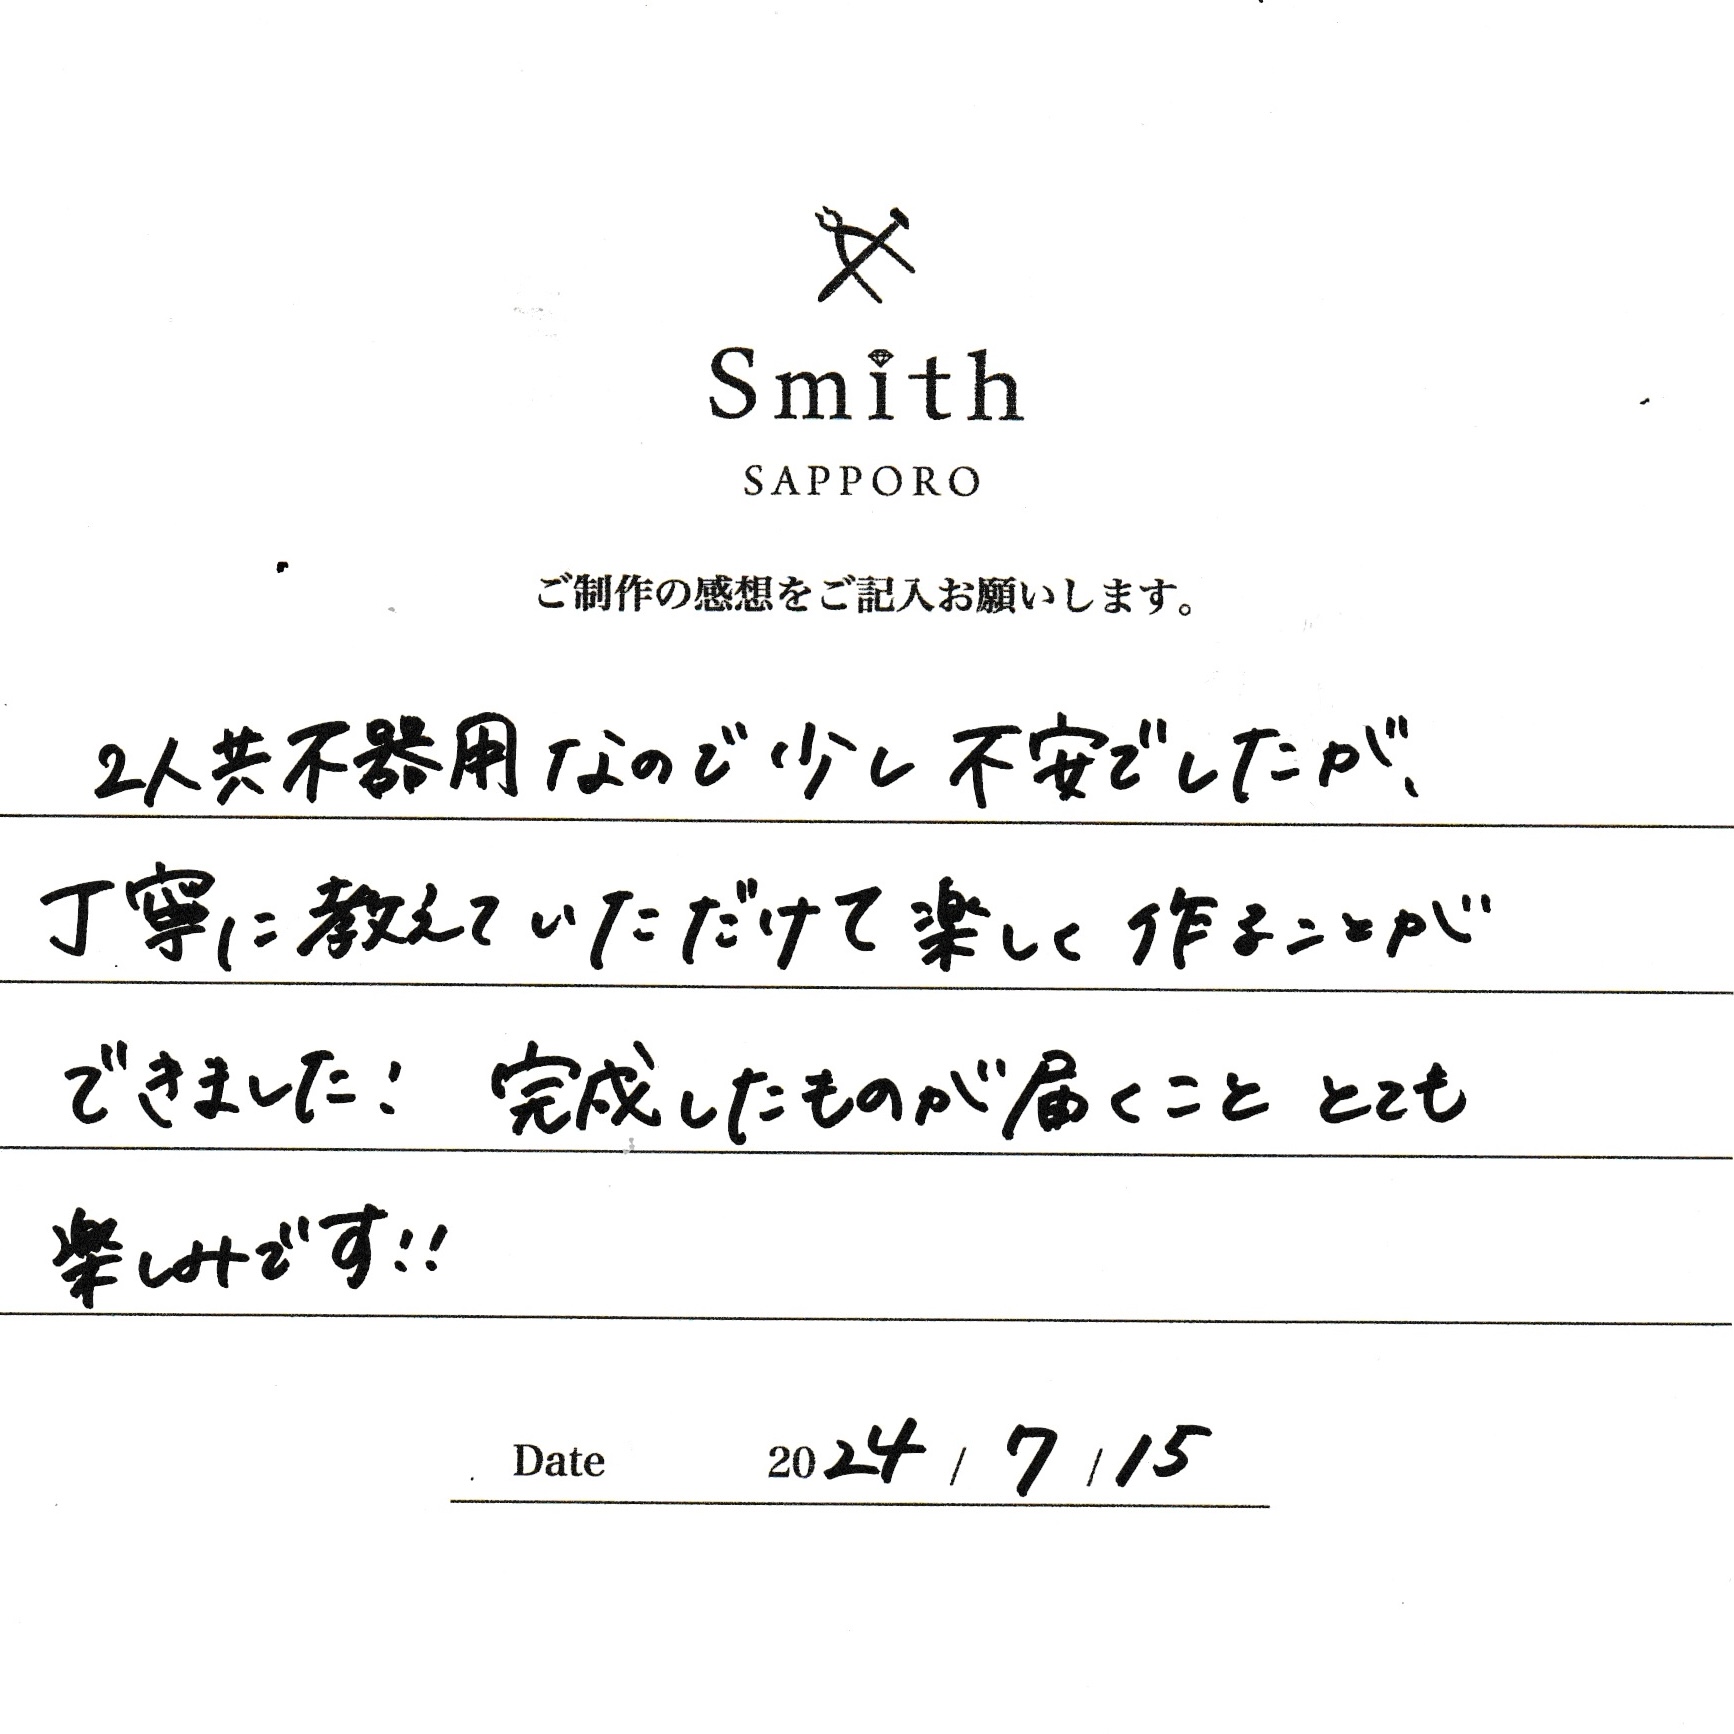 Smith
SAPPORO
ご制作の感想をご記入お願いします。
2人共不器用なので少し不安でしたが、
丁寧に教えていただけて楽しく作ることが
できました! 完成したものが届くこと とても
楽しみです!!
Date 2024 / 7 / 15